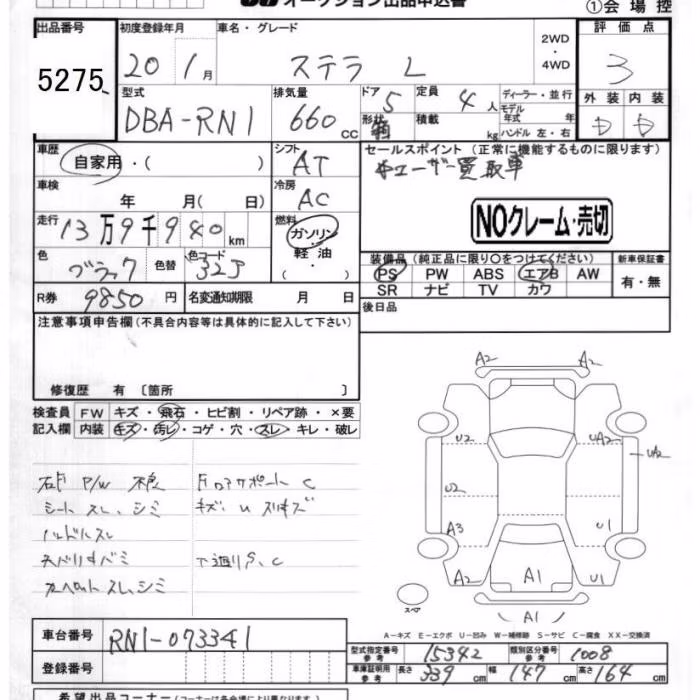 オークション出品申込書
①会場控
出品番号
5275
初度登録年月
20 1月
車名・グレード
ステラ L
2WD・4WD
評価点
3
型式
DBA-RN1
排気量
660cc
ドア 5
形状
定員 4人
積載 kg
ディーラー・並行
モデル年式 年式
ハンドル 左・右
外装 内装
D D
車歴
自家用・( )
シフト AT
セールスポイント (正常に機能するものに限ります)
ユーザー買取車
車検
年 月( 日)
冷房 AC
NOクレーム・売切
走行
13万9千980km
燃料
ガソリン・軽油・( )
色 ブラック
色替
色コード 32J
装備品(純正品に限り○をつけてください)
新車保証書
PS PW ABS エアB AW
有・無
SR ナビ TV カワ
R券 9850円
名変通知期限 月 日
後日品
注意事項申告欄(不具合内容等は具体的に記入して下さい)
修復歴 有〔箇所 〕
検査員記入欄
FW キズ・飛石・ヒビ割・リペア跡・×要
内装 キズ・汚レ・コゲ・穴・スレ・キレ・破レ
P/W 不良
シート スレ、シミ
ハンドルスレ
カーペットスレ、シミ
ドアサポート C
下廻りS、C
A2 A2
U2 UA2 UA2
U2
A3 U1
A2 A1 U1
A1
スペア
A−キズ E−エクボ U−凹み W−補修跡 S−サビ C−腐食 XX−交換済
車台番号 RN1-073341
登録番号
型式指定番号 参考 15342
類別区分番号 参考 1008
車庫証明用 参考 長さ 339cm 幅 147cm 高さ 164cm
希望出品コーナー